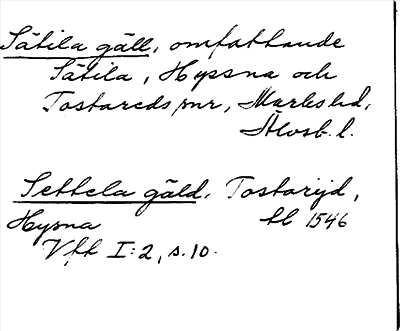 Sätila gäll, omfattande
Sätila, Hyssna och
Tostareds snr, Marks hd,
Älvsb. l.
Settela gäld. Tostarijd,
Hysna tl 1546
Vtt I:2, s. 10.